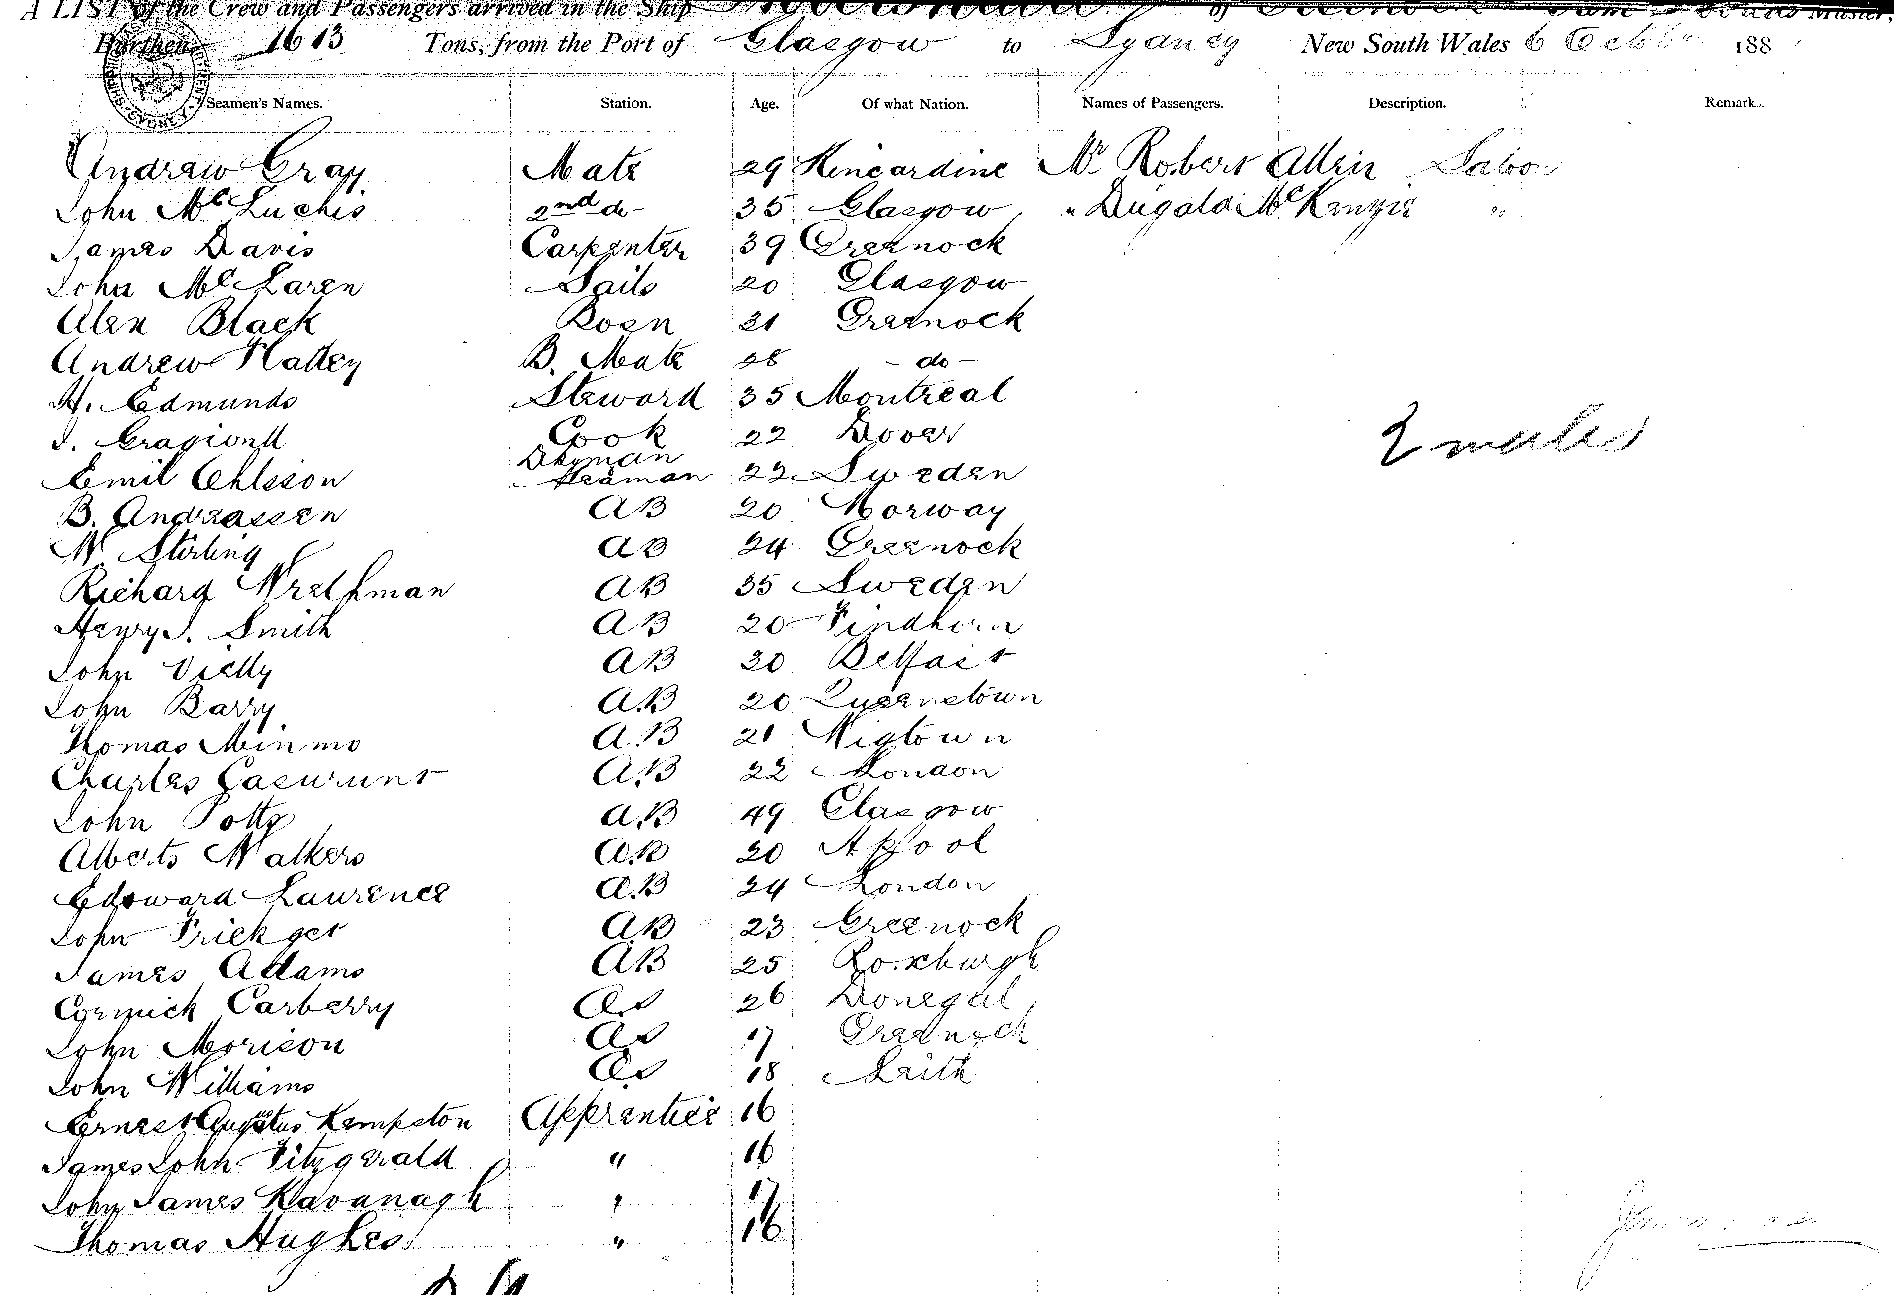 A LIST of the Crew and Passengers arrived in the Ship of Master,
Burthen 1613 Tons, from the Port of Glasgow to Sydney New South Wales 6 Octbr 188
Seamen's Names. Station. Age. Of what Nation. Names of Passengers. Description. Remark.
Andrew Gray Mate 29 Kincardine Mr Robert Allin Labor
John McLuckis 2nd do 35 Glasgow " Dugald McKenzie "
James Davis Carpenter 39 Greenock
John McLaren Sails 20 Glasgow
Alex Black Bosn 21 Greenock
Andrew Hattey B. Mate 28 - do -
H. Edmunds Steward 35 Montreal
Cook 22 Dover
2 males
Emil Ohlsson Dkyman Seaman 22 Sweden
B. Andreassen AB 20 Norway
W. Stirling AB 24 Greenock
Richard Wrethman AB 35 Sweden
Henry J. Smith AB 20 Findhorn
John Vielly AB 30 Belfast
John Barry AB 20 Queenstown
Thomas Minmo A.B 21 Wigtown
Charles A.B 22 London
John Potts A.B 49 Glasgow
Alberts Walkers A.B 20
Edward Laurence A.B 24 London
John AB 23 Greenock
James Adams AB 25 Roxburgh
Cormick Carberry OS 26 Donegal
John Morison OS 17 Greenock
John Williams OS 18 Leith
Ernest Augustus Kempston Apprentice 16
James John Fitzgerald " 16
John James Kavanagh " 17
Thomas Hughes " 16